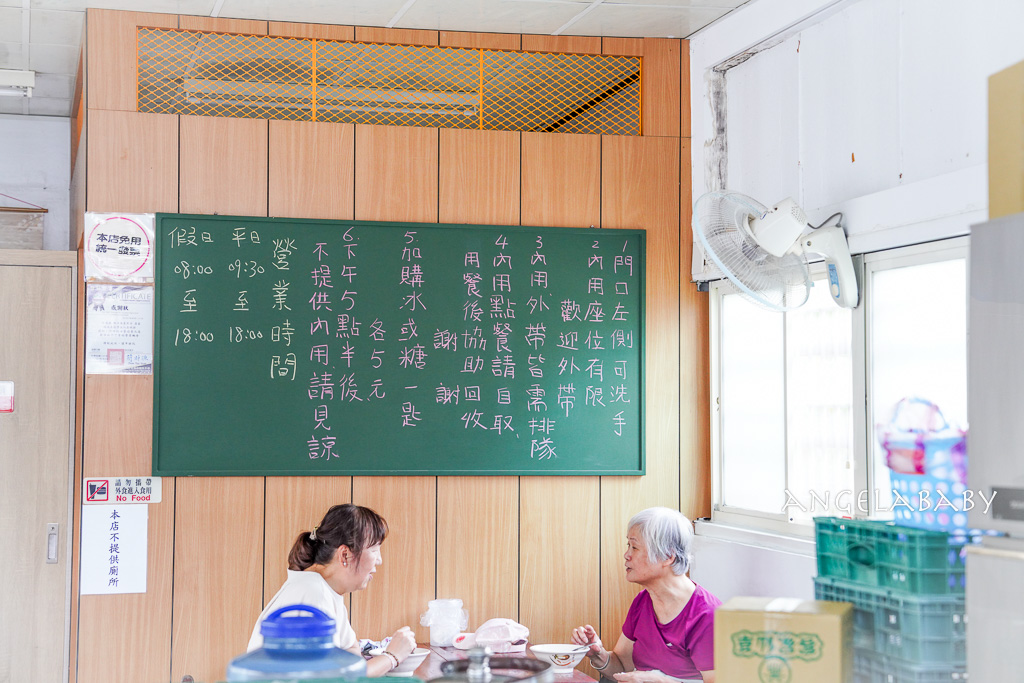 1.門口左側可洗手
2.內用座位有限
歡迎外帶
3.內用.外帶皆需排隊
4.內用點餐請自取.
用餐後協助回收
謝謝
5.加購冰或糖一匙
各5元
6.下午5點半後.
不提供內用.請見諒
營業時間
平日
09:30
至
18:00
假日
08:00
至
18:00
本店免用
統一發票
請勿攜帶
外食進入食用
No Food
本店不提供廁所
ANGELABABY